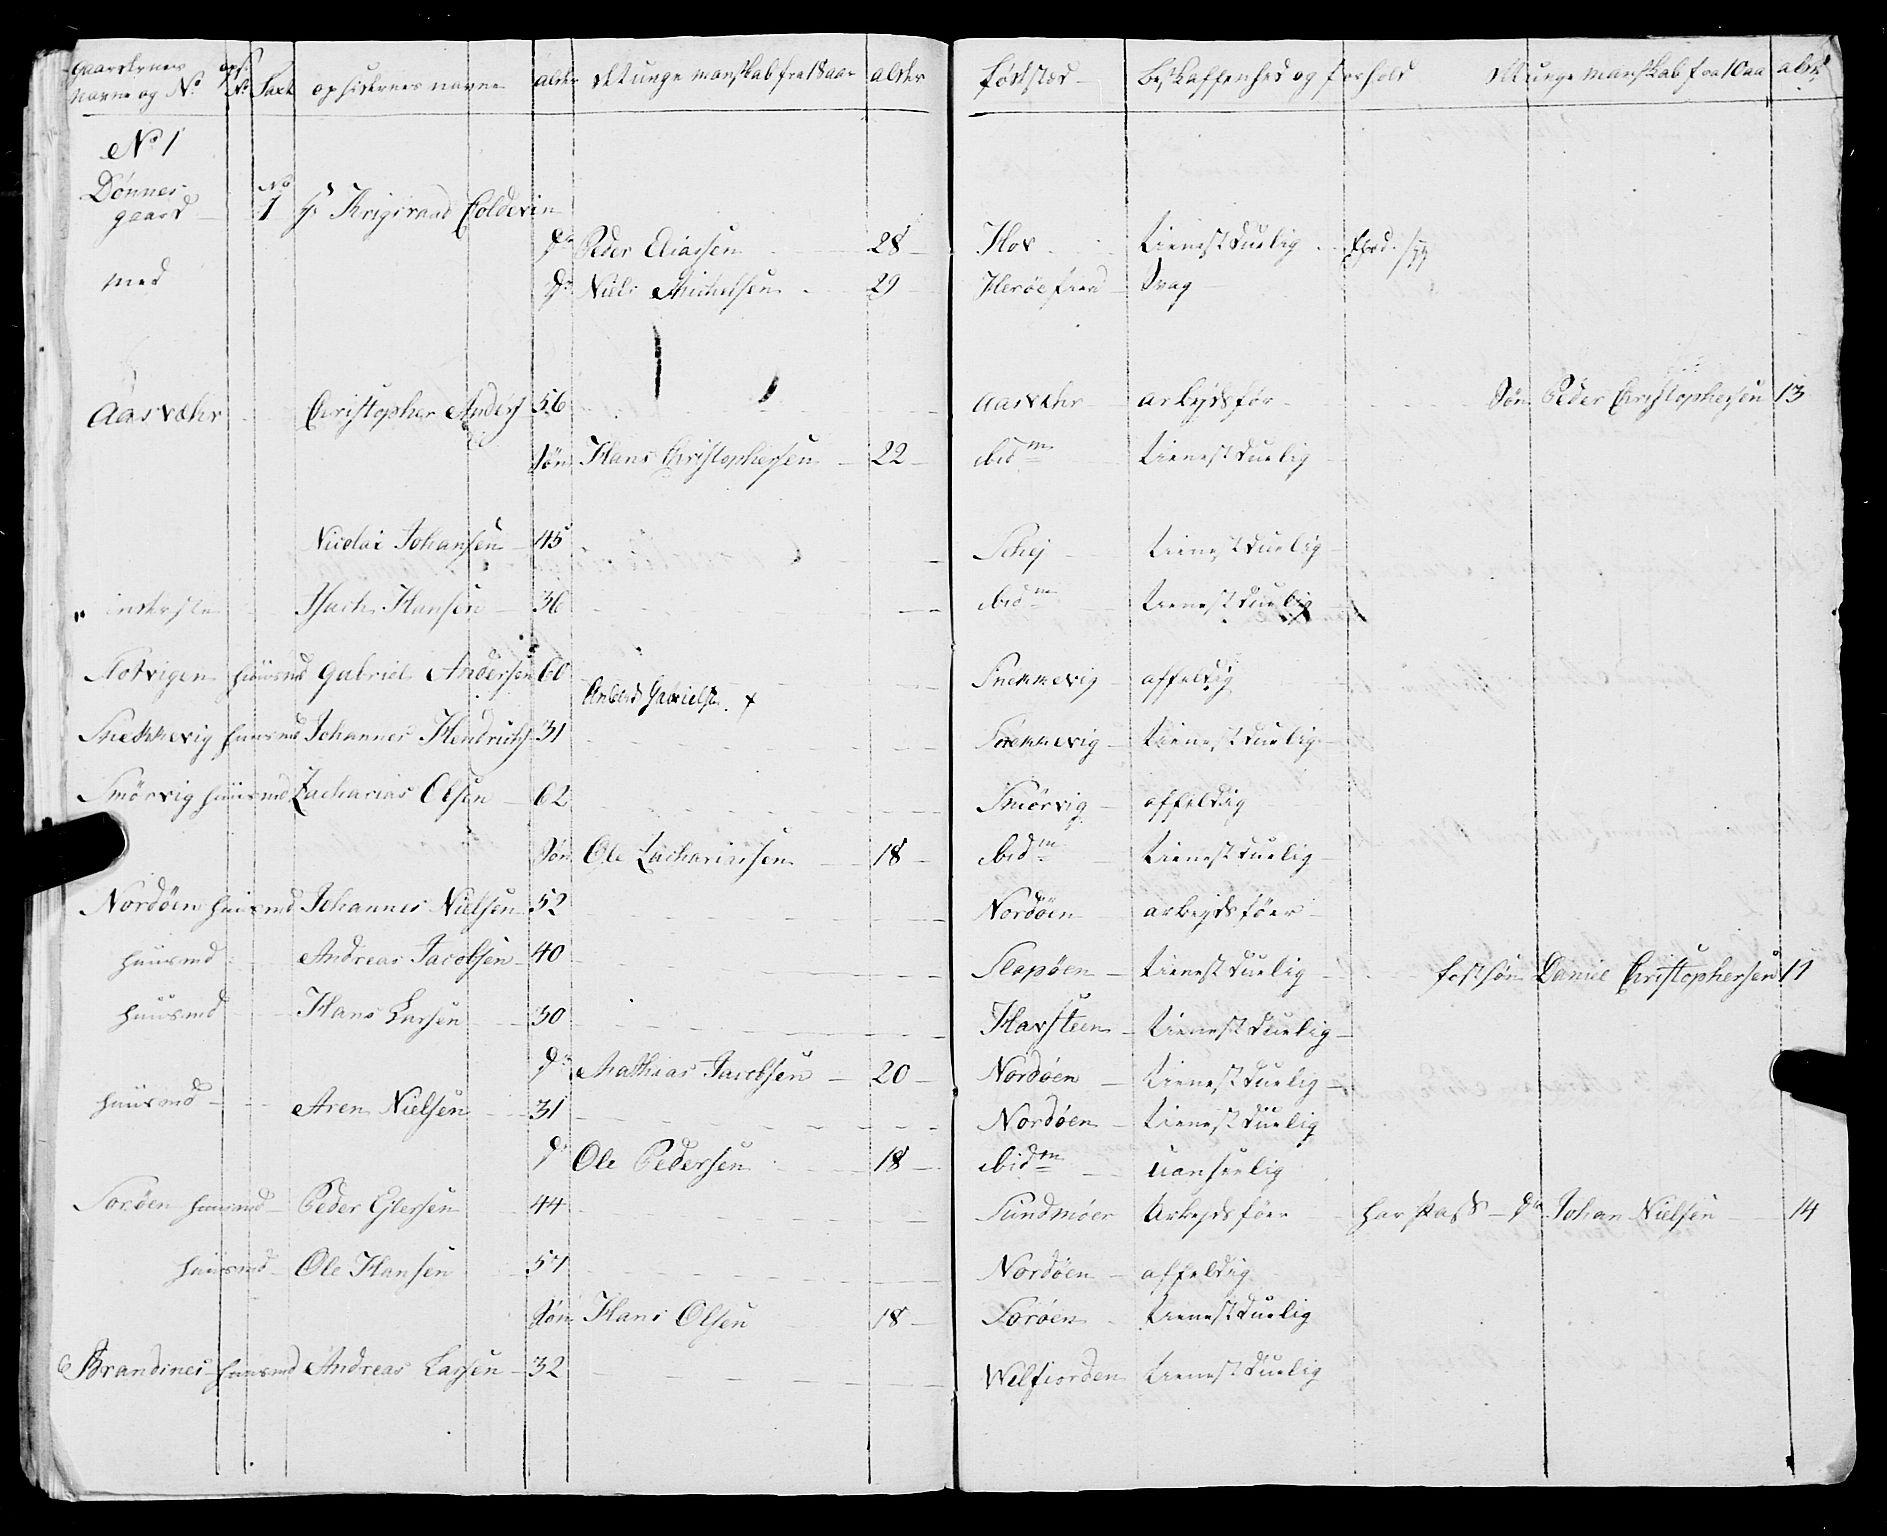 Gaardernes Navne og No opsid. No Laxt opsidernes navne alder det unge manskab fra 18 aar alder fødested beskaffenhed og forhold det unge manskab fra 10 aa alder
No 1
Dønnes
gaard No 1 Hr Krigsraad Coldevin
Dr Peder Eliassen 28 Hov tienestduelig
med Dr Niels Michelsen 29 Herøefiord Svag
Aasværhr Christopher Anders 56 aasværhr arbejdsfør Søn Peder Christophersen 13
Søn Hans Christophersen 22 ibidm tienestduelig
Nicolai Johansen 45 Schej tienestduelig
inderste Isach Hansen 36 ibidm tienestduelig
huusmd Gabriel Andersen 60 Snekkevig affeldig
Gabrielsen x
Snekkevig huusmd Johannes Hendrichs 31 Snekkevig tienestduelig
Smörvig huusmd Zacharias Olsen 62 Smörvig affeldig
Søn Ole Zachariesen 18 ibidm tienestduelig
Nordøen huusmd Johannes Nielsen 52 Nordøen arbejdsføer
huusmd Andreas Jacobsen 40 Slapøen tienestduelig fostsøn Daniel Christophersen 11
huusmd Hans Larsen 30 Havsteen tienestduelig
Dr Mathias Jacobsen 20 Nordøen tienestduelig
huusmd Aren Nielsen 31 Nordøen tienestduelig
Dr Ole Pedersen 18 ibidm uanseelig
Sorøen huusmd Peder Ejlersen 44 Sundmøer Arbejdsføer har Pass Dr Johan Nielsen 14
huusmd Ole Hansen 57 Nordøen affeldig
Søn Hans Olsen 18 Sorøen tienestduelig
Brandsnes huusmd Andreas Larsen 32 Welfiorden tienestduelig